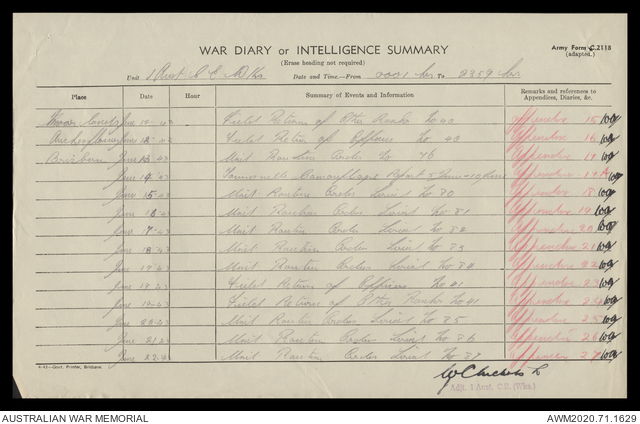 WAR DIARY or INTELLIGENCE SUMMARY
Army Form C.2118
(adapted.)
(Erase heading not required)
Unit 1 Aust C E Wks Date and Time—From 0001 hrs To 2359 hrs
Place Date Hour Summary of Events and Information Remarks and references to Appendices, Diaries, &c.
June 12-43 Field Return of Other Ranks No 40 Appendix 15
June 12-43 Field Return of Officers No 40 Appendix 16
Brisbane June 13-43 Unit Routine Order No 76 Appendix 17
June 14-43 Camouflage Report 5 June-10 June Appendix
June 15-43 Unit Routine Order Serial No 80 Appendix 18
June 16-43 Unit Routine Order Serial No 81 Appendix 19
June 17-43 Unit Routine Order Serial No 82 Appendix 20
June 18-43 Unit Routine Order Serial No 83 Appendix 21
June 19-43 Unit Routine Order Serial No 84 Appendix 22
June 19-43 Field Return of Officers No 41 Appendix 23
June 19-43 Field Return of Other Ranks No 41 Appendix 24
June 20-43 Unit Routine Order Serial No 85 Appendix 25
June 21-43 Unit Routine Order Serial No 86 Appendix 26
June 22-43 Unit Routine Order Serial No 87 Appendix 27
4-42—Govt. Printer, Brisbane.
Adjt. 1 Aust. C.E. (Wks.)
AUSTRALIAN WAR MEMORIAL
AWM2020.71.1629